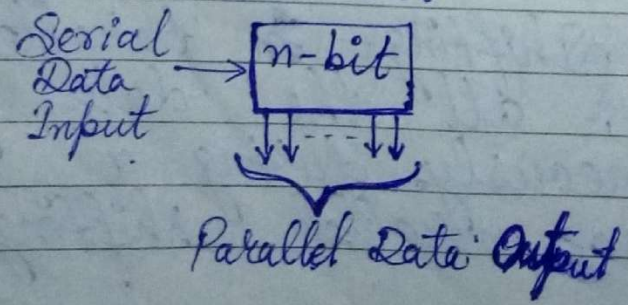 Serial
Data
Input
n-bit
Parallel Data Output